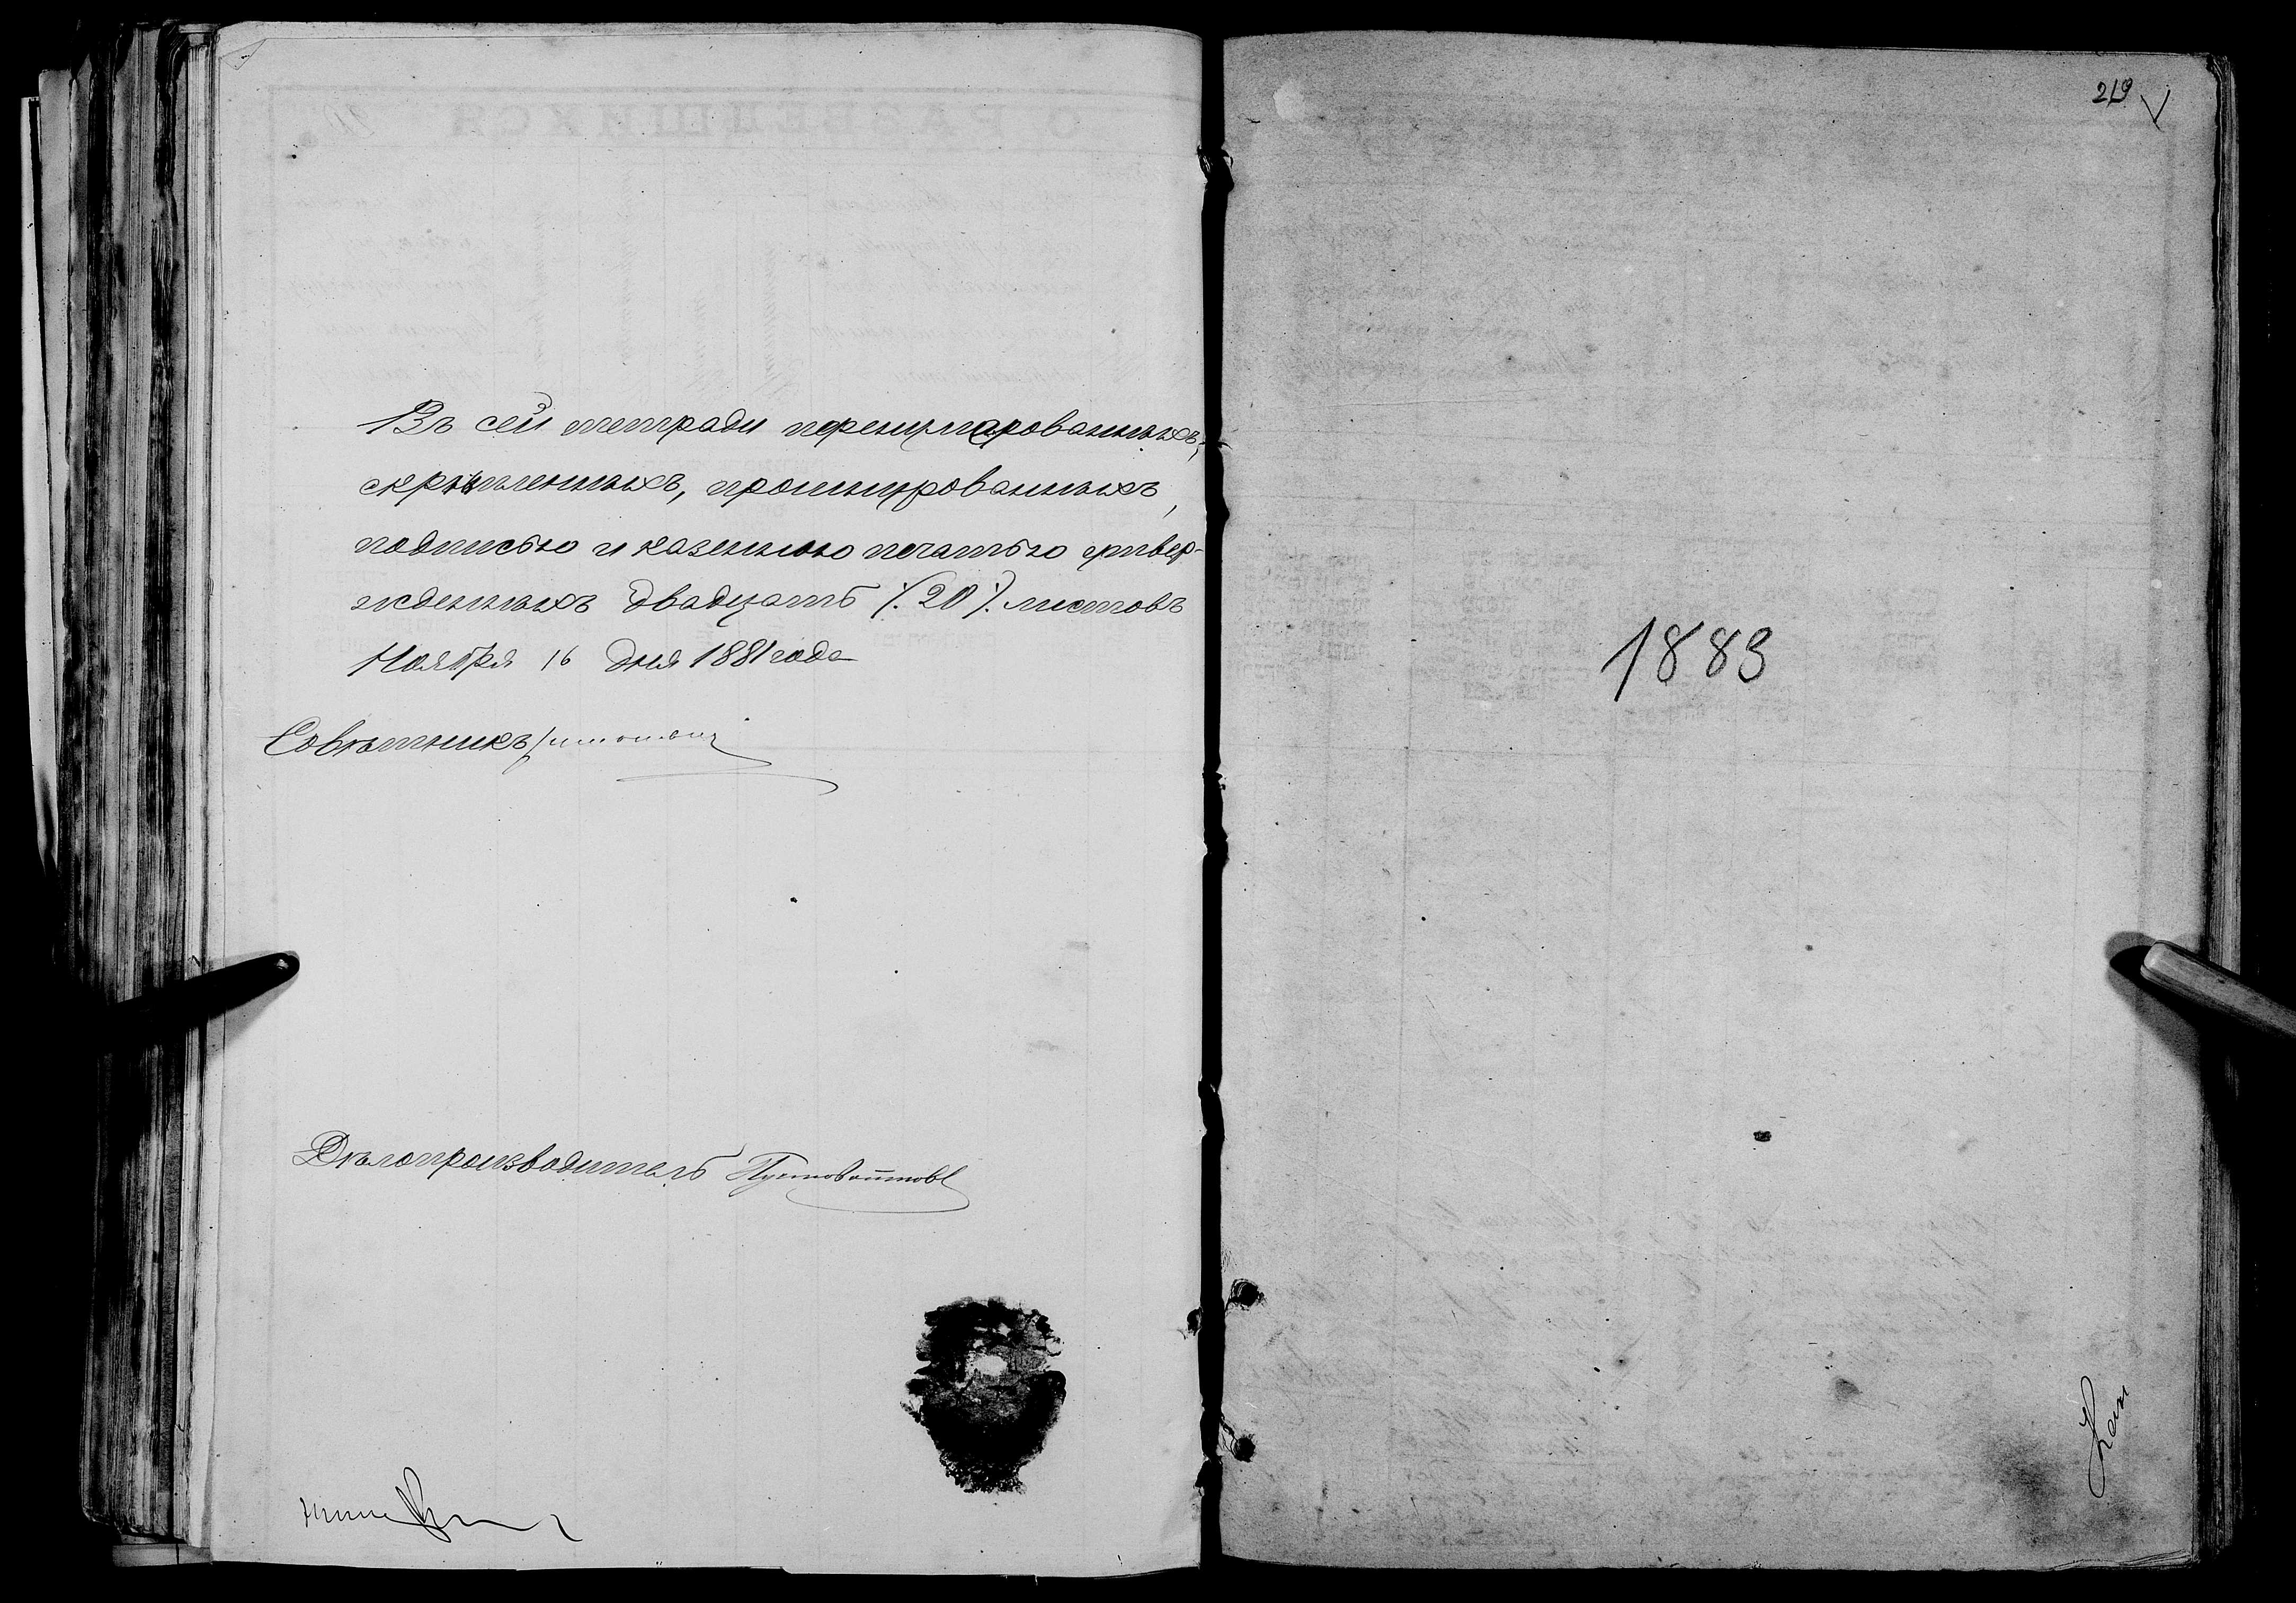 Въ сей тетради перенумерованныхъ,
скрѣпленныхъ, прошнурованныхъ,
подписью и казенною печатью утвер-
жденныхъ двадцать /.20/. листовъ
Ноября 16 дня 1881 года
Совѣтникъ
Дѣлопроизводитель Пустовойтовъ
219
1883